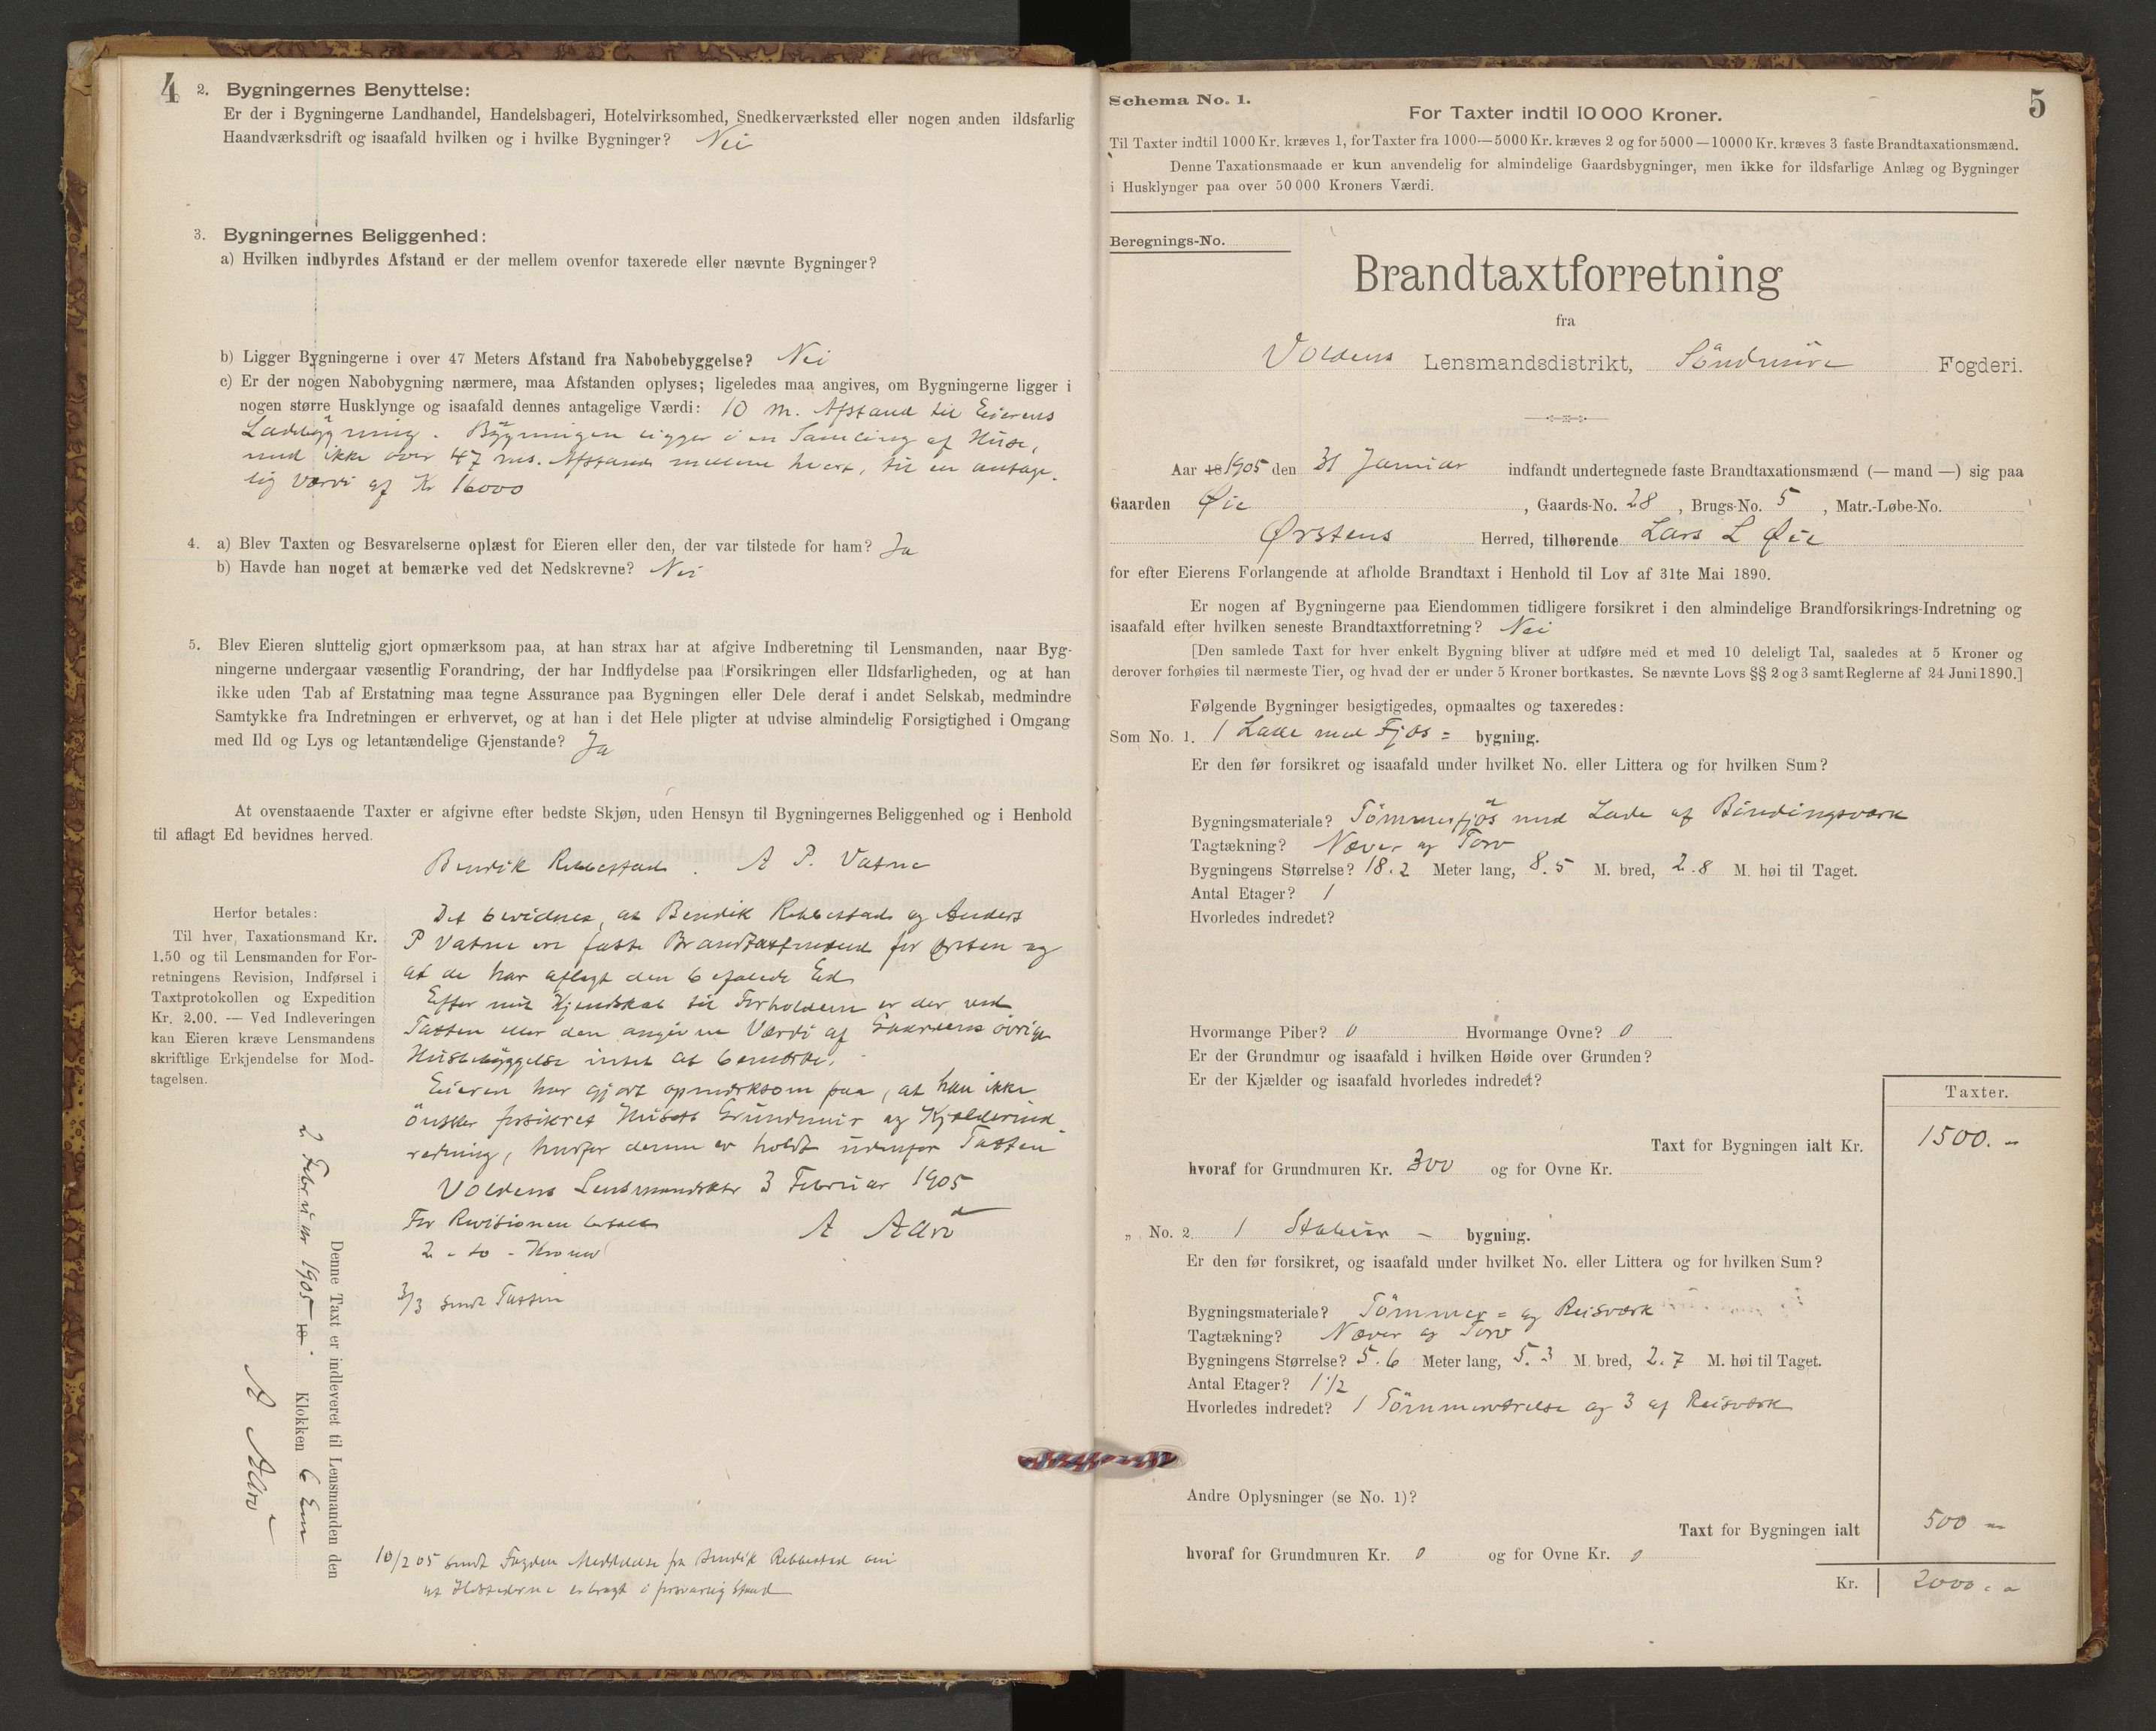 4
2. Bygningernes Benyttelse:
Er der i Bygningerne Landhandel, Handelsbageri, Hotelvirksomhed, Snedkerværksted eller nogen anden ildsfarlig
Haandværksdrift og isaafald hvilken og i hvilke Bygninger? Nei
3. Bygningernes Beliggenhed:
a) Hvilken indbyrdes Afstand er der mellem ovenfor taxerede eller nævnte Bygninger?
b) Ligger Bygningerne i over 47 Meters Afstand fra Nabobebyggelse? Nei
c) Er der nogen Nabobygning nærmere, maa Afstanden oplyses; ligeledes maa angives, om Bygningerne ligger i
nogen større Husklynge og isaafald dennes antagelige Værdi: 10 m. Afstand til Eierens
Ladebygning. Bygningen ligger i en Samling af Huse,
med ikke over 47 ms. Afstand mellem hvert, til en antage-
lig Værdi af Kr 16000
4. a) Blev Taxten og Besvarelserne oplæst for Eieren eller den, der var tilstede for ham? Ja
b) Havde han noget at bemærke ved det Nedskrevne? Nei
5. Blev Eieren sluttelig gjort opmærksom paa, at han strax har at afgive Indberetning til Lensmanden, naar Byg-
ningerne undergaar væsentlig Forandring, der har Indflydelse paa Forsikringen eller Ildsfarligheden, og at han
ikke uden Tab af Erstatning maa tegne Assurance paa Bygningen eller Dele deraf i andet Selskab, medmindre
Samtykke fra Indretningen er erhvervet, og at han i det Hele pligter at udvise almindelig Forsigtighed i Omgang
med Ild og Lys og letantændelige Gjenstande? Ja
At ovenstaaende Taxter er afgivne efter bedste Skjøn, uden Hensyn til Bygningernes Beliggenhed og i Henhold
til aflagt Ed bevidnes herved.
Bendik Rebbestad. A P. Vatne
Herfor betales:
Til hver Taxationsmand Kr.
1.50 og til Lensmanden for For-
retningens Revision, Indførsel i
Taxtprotokollen og Expedition
Kr. 2.00. — Ved Indleveringen
kan Eieren kræve Lensmandens
skriftlige Erkjendelse for Mod-
tagelsen.
Det bevidnes, at Bendik Rebbestad og Anders
P Vatne ere faste Brandtaxtmænd for Ørsten og
at de har aflagt den befalede Ed
Efter mit Kjendskab til Forholdene er der ved
Taxten eller den angivne Værdi af Gaardens øvrige
Husbebyggelse intet at bemærke.
Eieren har gjort opmærksom paa, at han ikke
ønsker forsikret Husets Grundmur og Kjælderind-
redning, hvorfor denne er holdt udenfor Taxten
Voldens Lensmandsktr 3 Februar 1905
For Revisionen betalt A Aarø
2 - to - Kroner
3/3 sendt Taxten
Denne Taxt er indleveret til Lensmanden den
2 Februar 1905 18 . Klokken 6 Em
A Aarø
10/2 05 sendt Fogden Meddelelse fra Bendik Rebbestad om
at Ildstederne er bragt i forsvarlig Stand
5
Schema No. 1.
For Taxter indtil 10 000 Kroner.
Til Taxter indtil 1000 Kr. kræves 1, for Taxter fra 1000—5000 Kr. kræves 2 og for 5000—10000 Kr. kræves 3 faste Brandtaxationsmænd.
Denne Taxationsmaade er kun anvendelig for almindelige Gaardsbygninger, men ikke for ildsfarlige Anlæg og Bygninger
i Husklynger paa over 50 000 Kroners Værdi.
Beregnings-No.
Brandtaxtforretning
fra
Voldens Lensmandsdistrikt, Söndmöre Fogderi.
Aar 18 1905 den 31 Januar indfandt undertegnede faste Brandtaxationsmænd (— mand —) sig paa
Gaarden Øie , Gaards-No. 28 , Brugs-No. 5 , Matr.-Løbe-No.
Ørstens Herred, tilhørende Lars L Øie
for efter Eierens Forlangende at afholde Brandtaxt i Henhold til Lov af 31te Mai 1890.
Er nogen af Bygningerne paa Eiendommen tidligere forsikret i den almindelige Brandforsikrings-Indretning og
isaafald efter hvilken seneste Brandtaxtforretning? Nei
[Den samlede Taxt for hver enkelt Bygning bliver at udføre med et med 10 deleligt Tal, saaledes at 5 Kroner og
derover forhøies til nærmeste Tier, og hvad der er under 5 Kroner bortkastes. Se nævnte Lovs §§ 2 og 3 samt Reglerne af 24 Juni 1890.]
Følgende Bygninger besigtigedes, opmaaltes og taxeredes:
Som No. 1. 1 Lade med Fjös = bygning.
Er den før forsikret og isaafald under hvilket No. eller Littera og for hvilken Sum?
Bygningsmateriale? Tömmerfjös med Lade af Bindingsværk
Tagtækning? Næver og Torv
Bygningens Størrelse? 18.2 Meter lang, 8.5 M. bred, 2.8 M. høi til Taget.
Antal Etager? 1
Hvorledes indredet?
Hvormange Piber? 0 Hvormange Ovne? 0
Er der Grundmur og isaafald i hvilken Høide over Grunden?
Er der Kjælder og isaafald hvorledes indredet?
Taxter.
Taxt for Bygningen ialt Kr. 1500. -
hvoraf for Grundmuren Kr. 300 og for Ovne Kr.
„ No. 2. 1 Stabur - bygning.
Er den før forsikret, og isaafald under hvilket No. eller Littera og for hvilken Sum?
Bygningsmateriale? Tömmer = og Reisværk
Tagtækning? Næver og Torv
Bygningens Størrelse? 5.6 Meter lang, 5.3 M. bred, 2.7 M. høi til Taget.
Antal Etager? 1 1/2
Hvorledes indredet? 1 Tömmerværelse og 3 af Reisværk
Andre Oplysninger (se No. 1)?
Taxt for Bygningen ialt 500 -
hvoraf for Grundmuren Kr. 0 og for Ovne Kr. 0
Kr. 2000. -